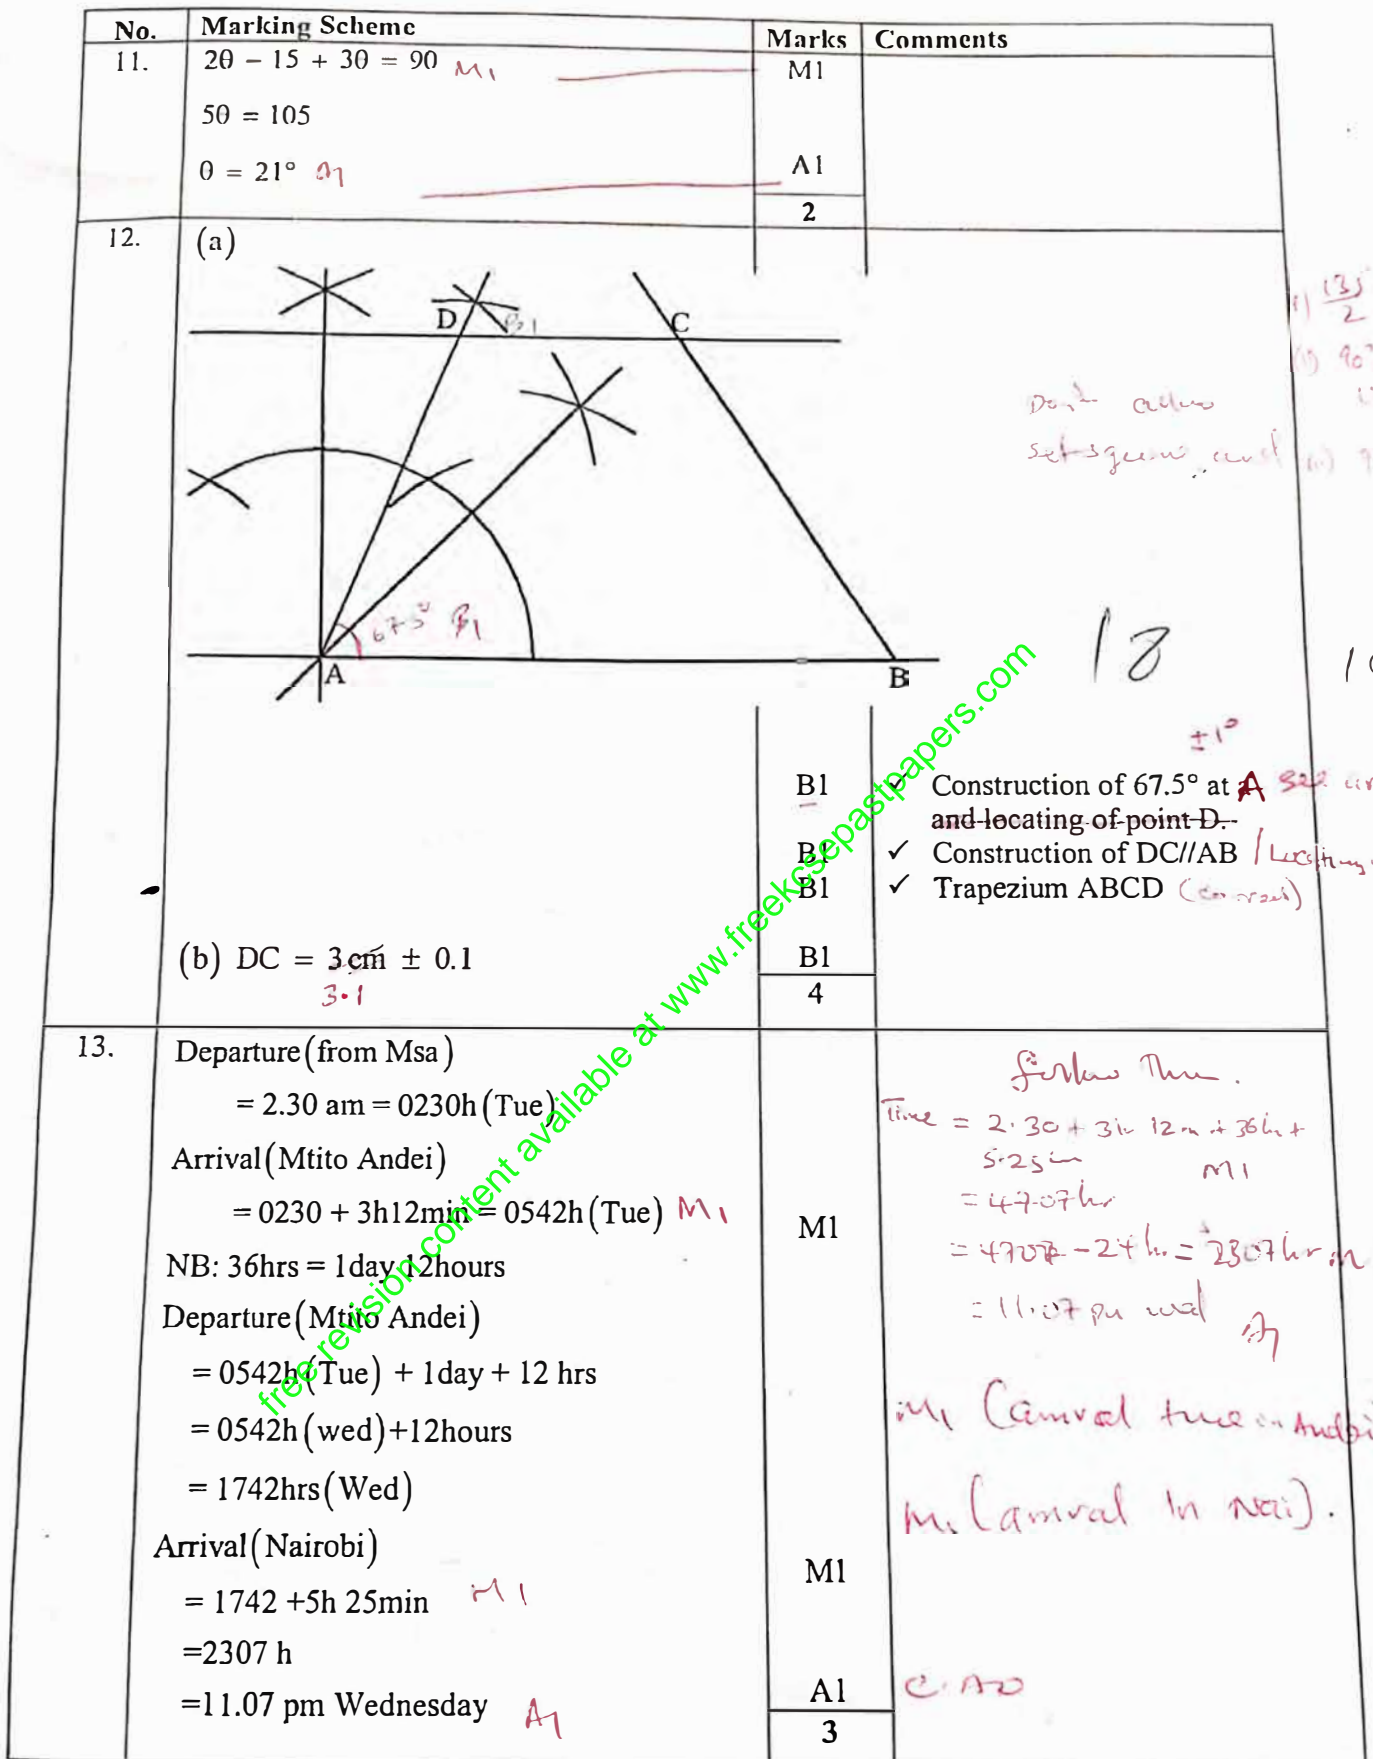 No. Marking Scheme Marks Comments
11. 2θ − 15 + 3θ = 90 M1 M1
5θ = 105
θ = 21° A1 A1
2
12. (a)
D B1 C
135
2
(ii) 90°
Don't
set square and (iii) 9
67.5° B1
A B
18
±1°
B1 ✓ Construction of 67.5° at A see
and locating of point D.
B1 ✓ Construction of DC//AB /Locating
B1 ✓ Trapezium ABCD
(b) DC = 3cm ± 0.1 B1
3.1
4
13. Departure(from Msa)
= 2.30 am = 0230h(Tue)
Arrival(Mtito Andei)
= 0230 + 3h12min = 0542h(Tue) M1 M1
NB: 36hrs = 1day 12hours
Departure(Mtito Andei)
= 0542h(Tue) + 1day + 12 hrs
= 0542h(wed)+12hours
= 1742hrs(Wed)
Arrival(Nairobi)
= 1742 +5h 25min M1 M1
=2307 h
=11.07 pm Wednesday A1 A1
3
Time = 2.30 + 3h 12m + 36hr +
5.25
M1
= 47.07hr
= 4707 − 24hr = 2307hr in
= 11.07 pm wed A1
M1 (arrival time in Andei
M1 (arrival in Nai).
C.AO
free revision content available at www.freekcsepastpapers.com